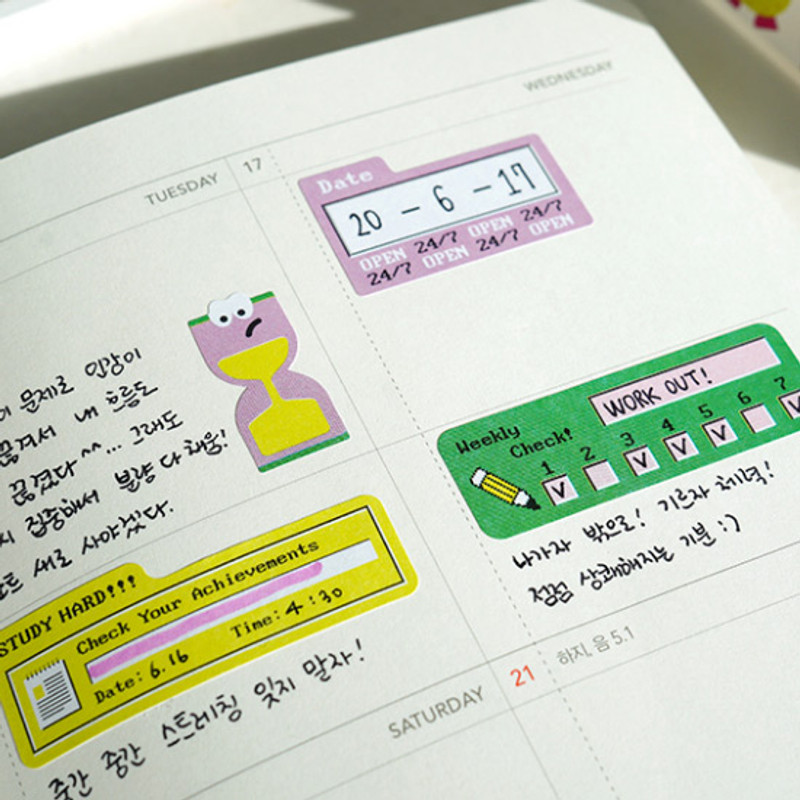 WEDNESDAY
TUESDAY
17
Date
20 - 6 - 17
OPEN 24/7 OPEN 24/7
24/7 OPEN 24/7 OPEN
문제로 인강이
끊겨서 내 흐름도
끊겼다^^... 그래도
집중해서 분량 다 채움!
새로 사야겠다.
STUDY HARD!!!
Check Your Achievements
Date: 6.16 Time: 4:30
중간 중간 스트레칭 잊지 말자!
WORK OUT!
Weekly
Check!
1 2 3 4 5 6 7
V V V V V
나가자 밖으로! 기르자 체력!
점점 상쾌해지는 기분 :)
SATURDAY
21
하지, 음 5.1